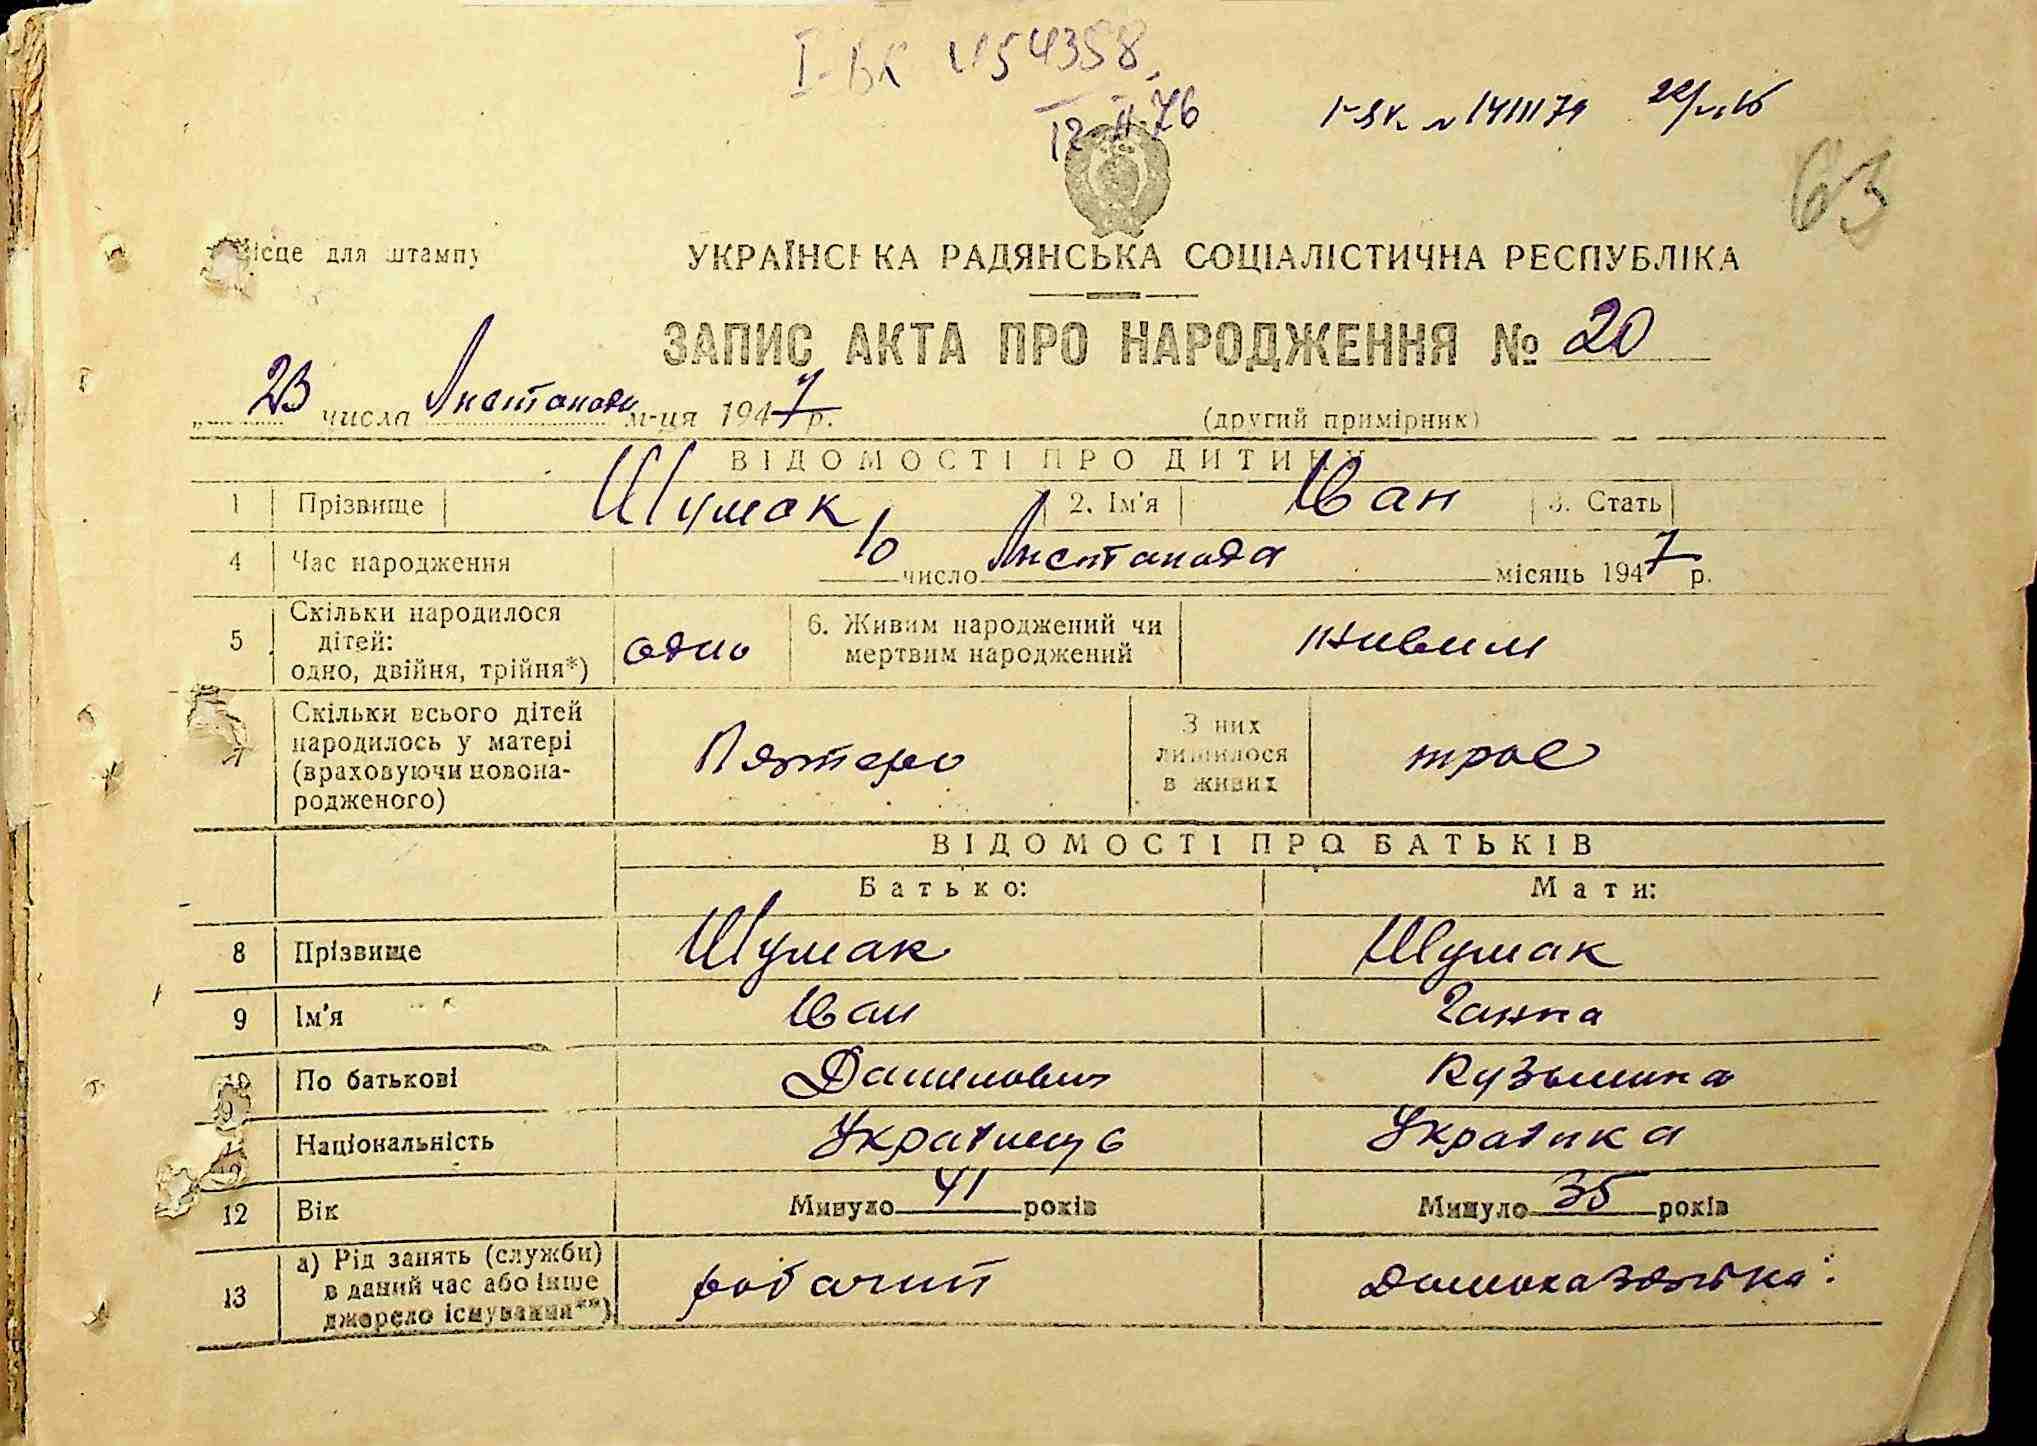 І-БК №54358
12-II-76
63
Місце для штампу
УКРАЇНСЬКА РАДЯНСЬКА СОЦІАЛІСТИЧНА РЕСПУБЛІКА
ЗАПИС АКТА ПРО НАРОДЖЕННЯ № 20
„ 23 числа Листопада м-ця 1947 р.
(другий примірник)
ВІДОМОСТІ ПРО ДИТИНУ
1 Прізвище Шумак 2. Ім'я Іван 3. Стать
4 Час народження 10 число Листопада місяць 1947 р.
5 Скільки народилося дітей: одно, двійня, трійня*) одно 6. Живим народжений чи мертвим народжений живим
7 Скільки всього дітей народилось у матері (враховуючи новонародженого) Пятеро З них лишилося в живих трое
ВІДОМОСТІ ПРО БАТЬКІВ
Батько: Мати:
8 Прізвище Шумак Шумак
9 Ім'я Іван Ганна
10 По батькові Данилович Кузьминa
11 Національність Украінець Украінка
12 Вік Минуло 41 років Минуло 35 років
13 а) Рід занять (служби) в даний час або інше джерело існування**) робачий домохазяйка